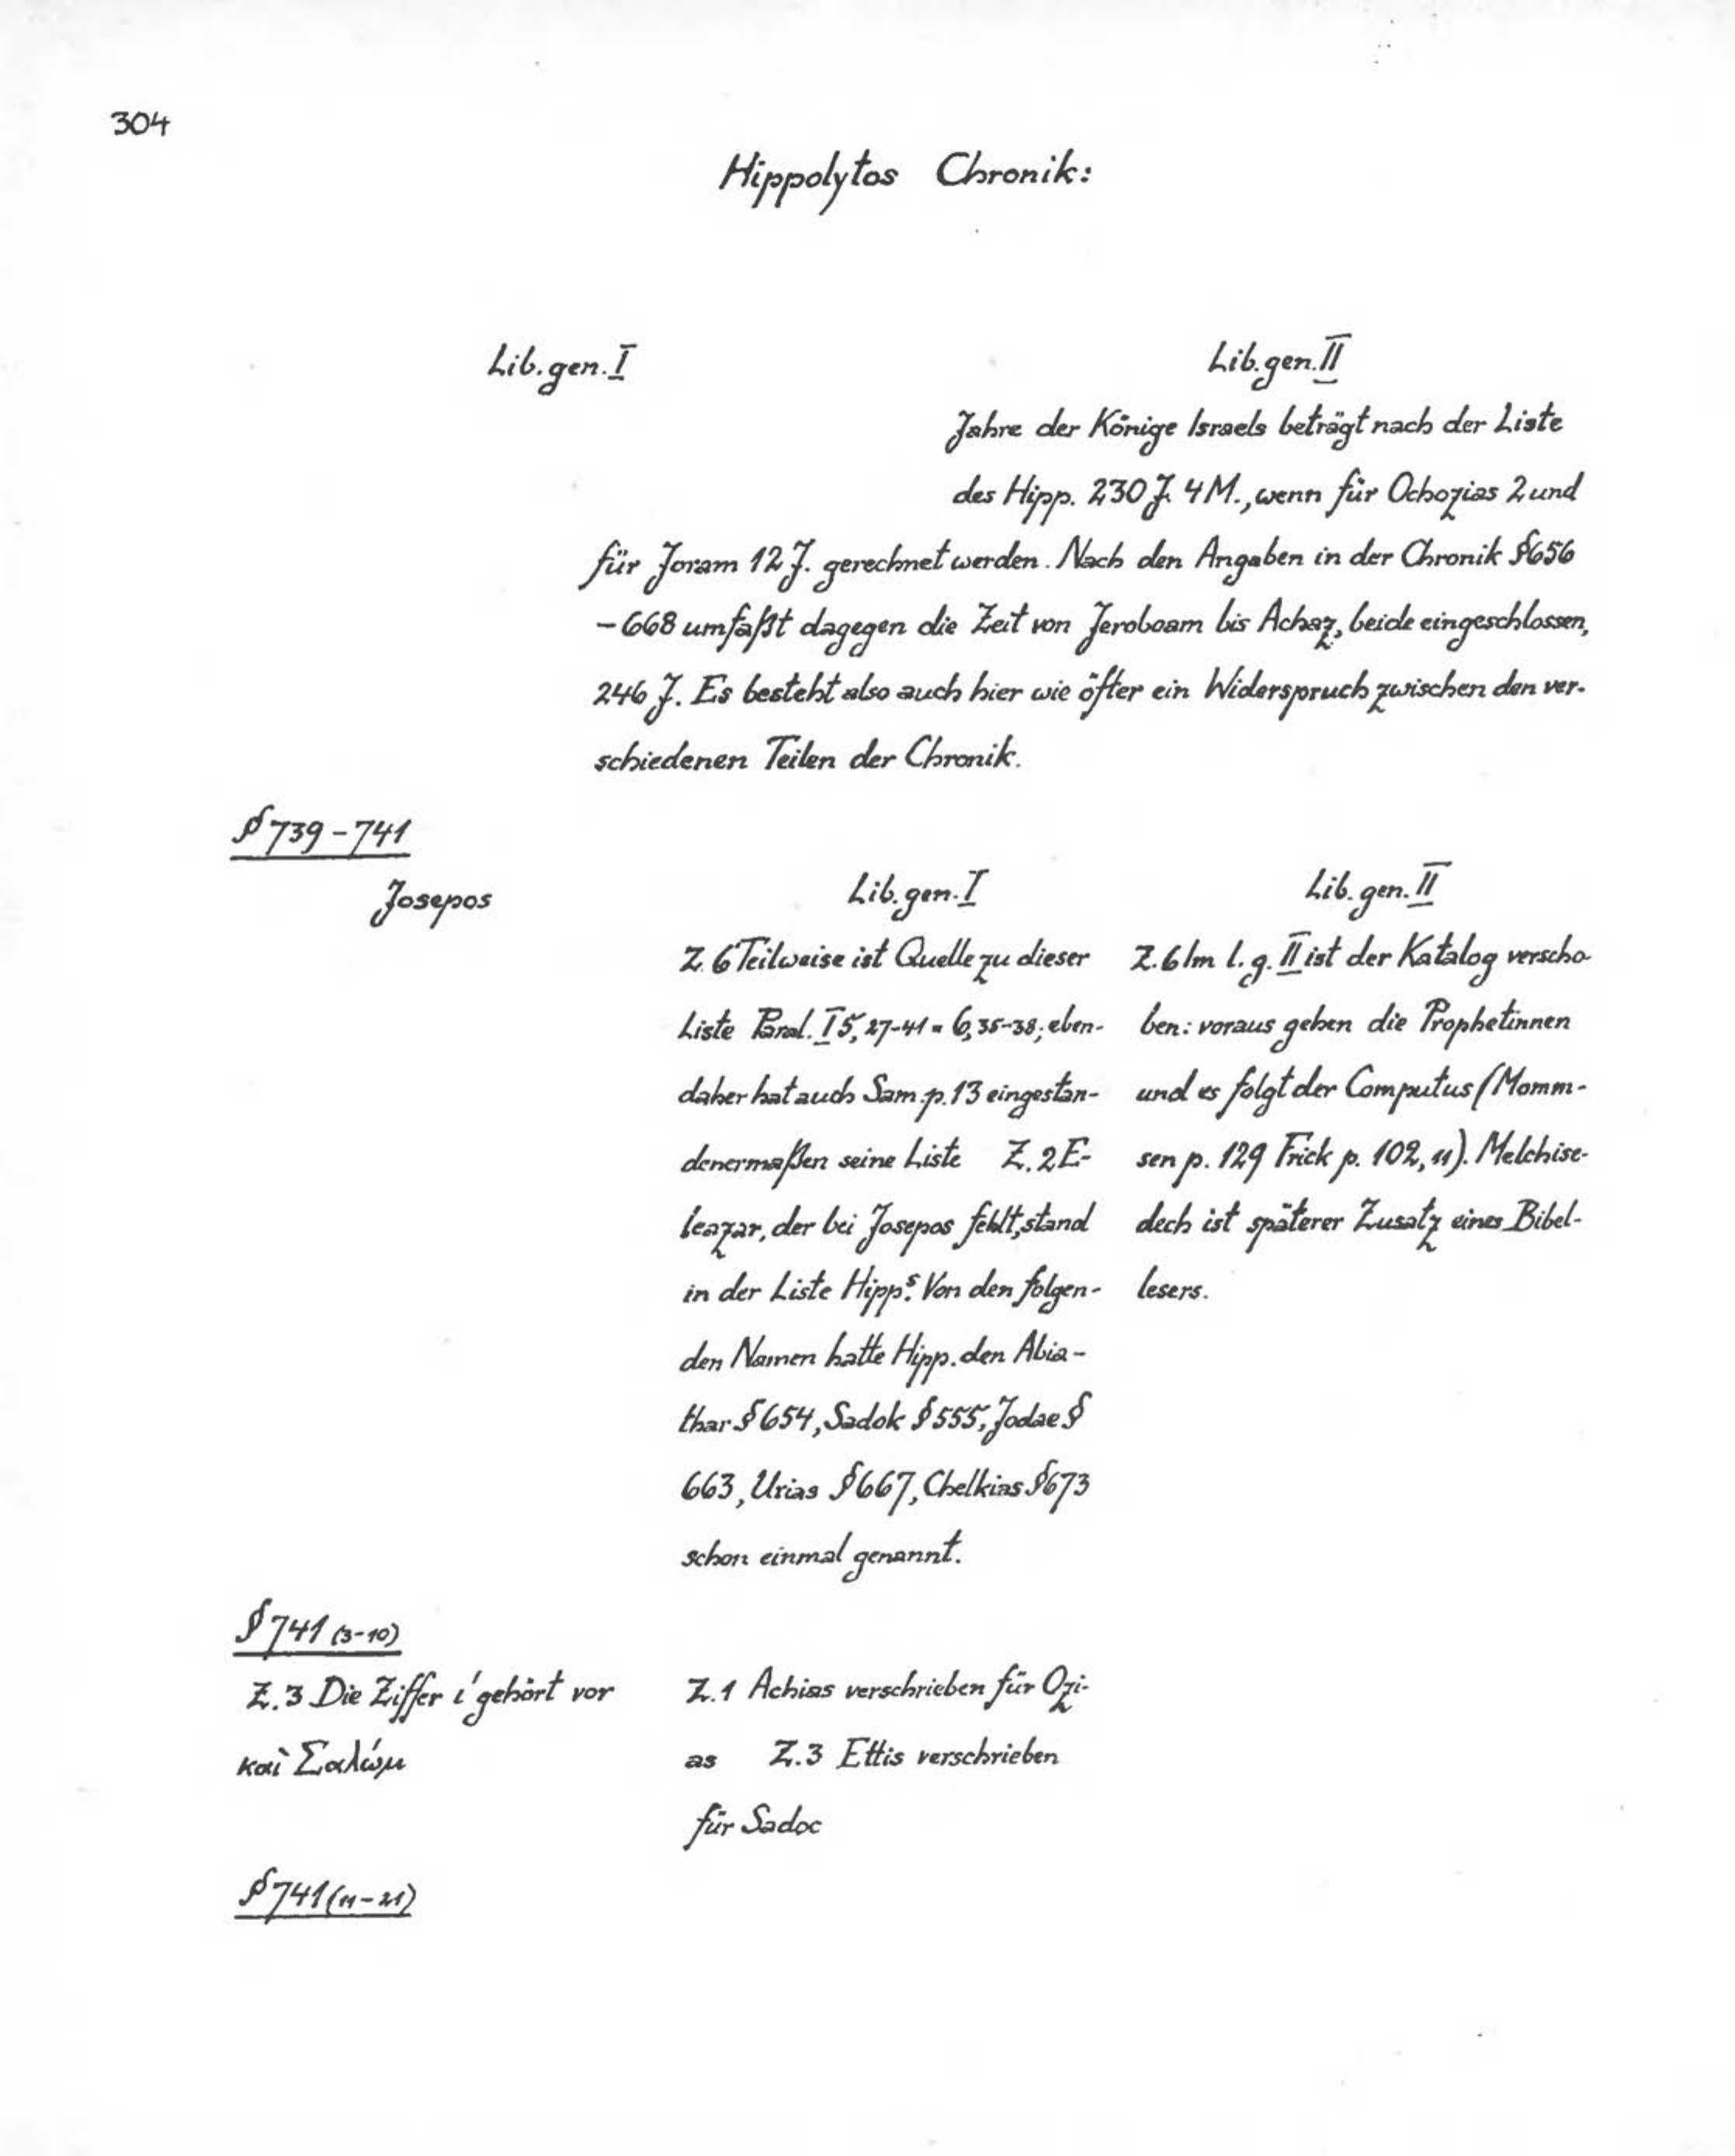 304
Hippolytos Chronik:
Lib. gen. I
Lib. gen. II
Jahre der Könige Israels beträgt nach der Liste
des Hipp. 230 J. 4 M., wenn für Ochozias 2 und
für Joram 12 J. gerechnet werden. Nach den Angaben in der Chronik §656
-668 umfaßt dagegen die Zeit von Jeroboam bis Achaz, beide eingeschlossen,
246 J. Es besteht also auch hier wie öfter ein Widerspruch zwischen den ver-
schiedenen Teilen der Chronik.
§ 739-741
Josepos
Lib. gen. I
Z. 6 Teilweise ist Quelle zu dieser
Liste Paral. I 5, 27-41 = 6, 35-38; eben-
daher hat auch Sam. p. 13 eingestan-
denermaßen seine Liste Z. 2 E-
leazar, der bei Josepos fehlt, stand
in der Liste Hipps. Von den folgen-
den Namen hatte Hipp. den Abia-
thar § 654, Sadok § 555, Jodae §
663, Urias § 667, Chelkias § 673
schon einmal genannt.
Lib. gen. II
Z. 6 Im l. g. II ist der Katalog verscho-
ben: voraus gehen die Prophetinnen
und es folgt der Computus (Momm-
sen p. 129 Frick p. 102, 11). Melchise-
dech ist späterer Zusatz eines Bibel-
lesers.
§ 741 (3-10)
Z. 3 Die Ziffer ι' gehört vor
καὶ Σαλώμ
Z. 1 Achias verschrieben für Ozi-
as Z. 3 Ettis verschrieben
für Sadoc
§ 741 (11-21)